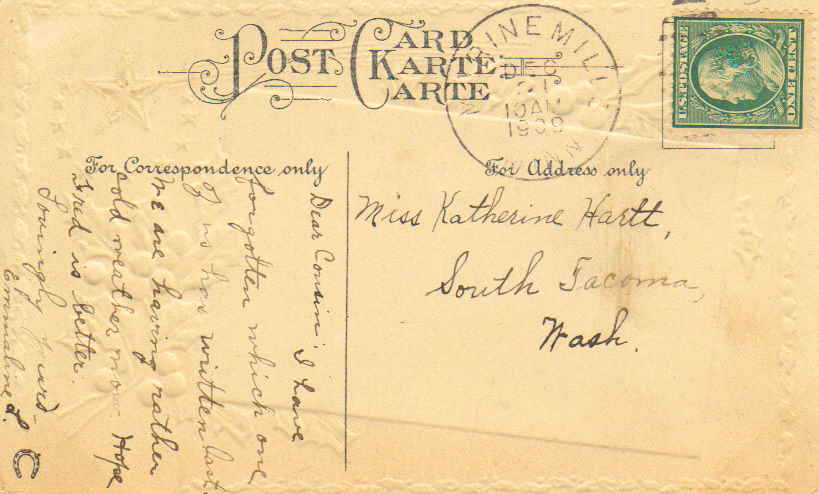 POST CARD
KARTE
CARTE
DEC
10 AM
1909
U.S. POSTAGE
ONE CENT
For Correspondence only
For Address only
Dear Cousin: I have
forgotten which one
of us has written last.
We are having rather
cold weather now. Hope
Fred is better.
Lovingly yours-
Emmaline L.
Miss Katherine Hartt,
South Tacoma,
Wash.